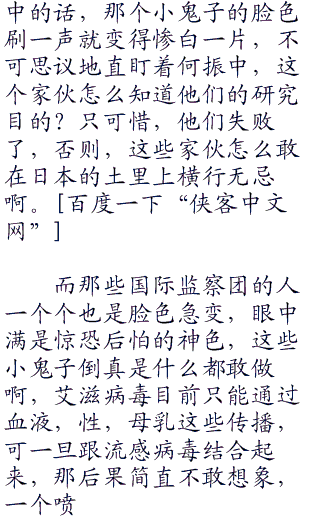 中的话，那个小鬼子的脸色
刷一声就变得惨白一片，不
可思议地直盯着何振中，这
个家伙怎么知道他们的研究
目的？只可惜，他们失败
了，否则，这些家伙怎么敢
在日本的土里上横行无忌
啊。[百度一下“侠客中文
网”]
而那些国际监察团的人
一个个也是脸色急变，眼中
满是惊恐后怕的神色，这些
小鬼子倒真是什么都敢做
啊，艾滋病毒目前只能通过
血液，性，母乳这些传播，
可一旦跟流感病毒结合起
来，那后果简直不敢想象，
一个喷